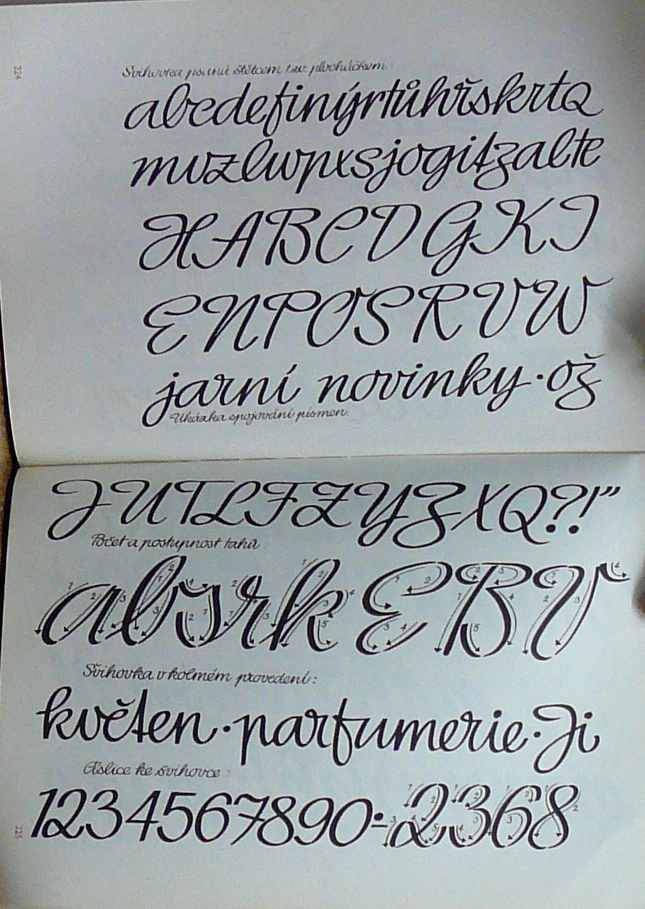 Švihovka psaná štětcem tzv. plochačkem.
abcdefinýrtůhřskrtQ
mvzlwpxsjogitzalte
HABCDGKI
ENPOSRVW
jarní novinky · ož
Ukázka spojování písmen.
JUTLFZYZXQ?!”
Počet a postupnost tahů
absrkEBV
Švihovka v kolmém provedení:
květen · parfumerie · Ji
Číslice ke švihovce:
1234567890 2368